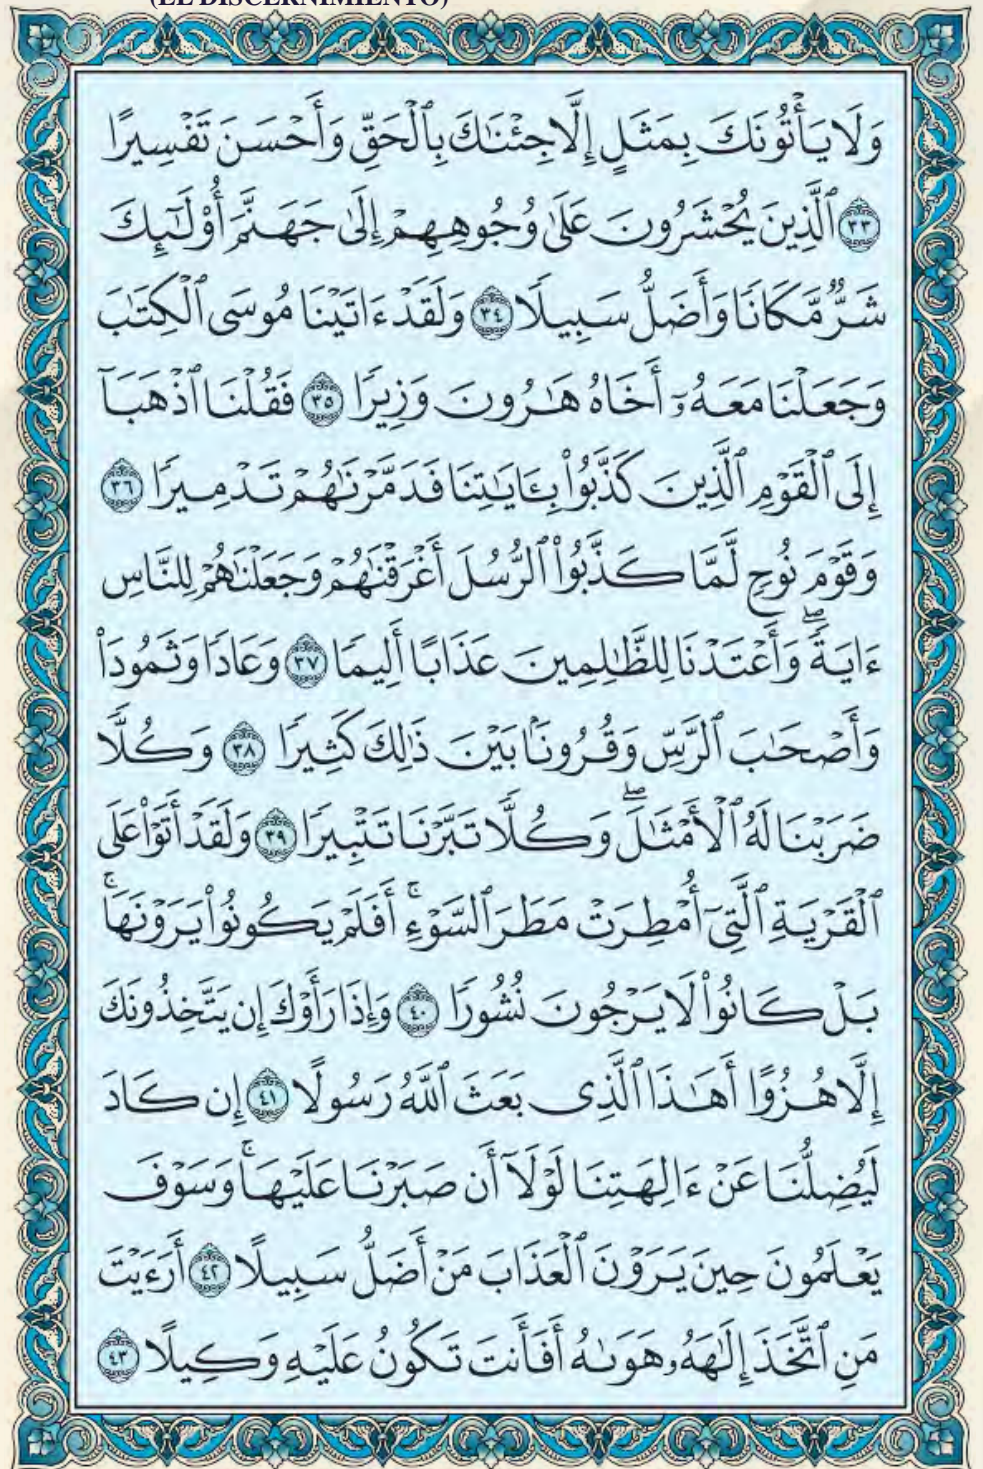 (EL DISCERNIMIENTO)
وَلَا يَأْتُونَكَ بِمَثَلٍ إِلَّا جِئْنَٰكَ بِٱلْحَقِّ وَأَحْسَنَ تَفْسِيرًا
٣٣ ٱلَّذِينَ يُحْشَرُونَ عَلَىٰ وُجُوهِهِمْ إِلَىٰ جَهَنَّمَ أُو۟لَٰٓئِكَ
شَرٌّ مَّكَانًا وَأَضَلُّ سَبِيلًا ٣٤ وَلَقَدْ ءَاتَيْنَا مُوسَى ٱلْكِتَٰبَ
وَجَعَلْنَا مَعَهُۥٓ أَخَاهُ هَٰرُونَ وَزِيرًا ٣٥ فَقُلْنَا ٱذْهَبَآ
إِلَى ٱلْقَوْمِ ٱلَّذِينَ كَذَّبُوا۟ بِـَٔايَٰتِنَا فَدَمَّرْنَٰهُمْ تَدْمِيرًا ٣٦
وَقَوْمَ نُوحٍ لَّمَّا كَذَّبُوا۟ ٱلرُّسُلَ أَغْرَقْنَٰهُمْ وَجَعَلْنَٰهُمْ لِلنَّاسِ
ءَايَةً ۖ وَأَعْتَدْنَا لِلظَّٰلِمِينَ عَذَابًا أَلِيمًا ٣٧ وَعَادًا وَثَمُودَا۟
وَأَصْحَٰبَ ٱلرَّسِّ وَقُرُونًۢا بَيْنَ ذَٰلِكَ كَثِيرًا ٣٨ وَكُلًّا
ضَرَبْنَا لَهُ ٱلْأَمْثَٰلَ ۖ وَكُلًّا تَبَّرْنَا تَتْبِيرًا ٣٩ وَلَقَدْ أَتَوْا۟ عَلَى
ٱلْقَرْيَةِ ٱلَّتِىٓ أُمْطِرَتْ مَطَرَ ٱلسَّوْءِ ۚ أَفَلَمْ يَكُونُوا۟ يَرَوْنَهَا ۚ
بَلْ كَانُوا۟ لَا يَرْجُونَ نُشُورًا ٤٠ وَإِذَا رَأَوْكَ إِن يَتَّخِذُونَكَ
إِلَّا هُزُوًا أَهَٰذَا ٱلَّذِى بَعَثَ ٱللَّهُ رَسُولًا ٤١ إِن كَادَ
لَيُضِلُّنَا عَنْ ءَالِهَتِنَا لَوْلَآ أَن صَبَرْنَا عَلَيْهَا ۚ وَسَوْفَ
يَعْلَمُونَ حِينَ يَرَوْنَ ٱلْعَذَابَ مَنْ أَضَلُّ سَبِيلًا ٤٢ أَرَءَيْتَ
مَنِ ٱتَّخَذَ إِلَٰهَهُۥ هَوَىٰهُ أَفَأَنتَ تَكُونُ عَلَيْهِ وَكِيلًا ٤٣